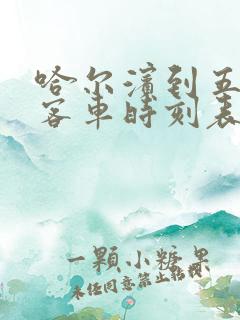 哈尔滨到五
客车时刻表
一顆小糖果
未经同意禁止转载